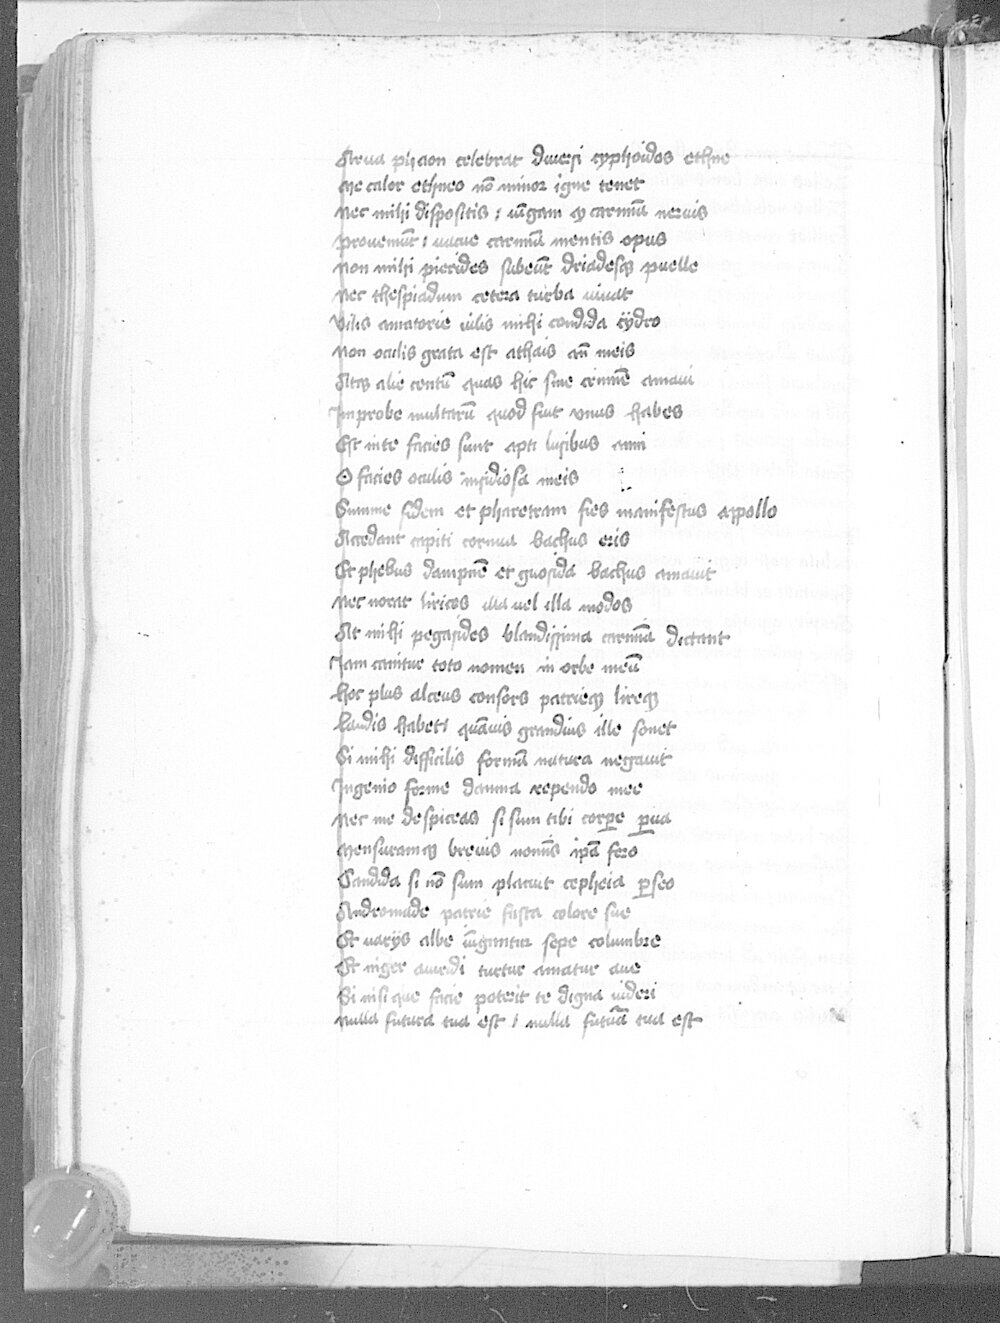 Arua phaon celebrat diuersi typhoidos ethne
Me calor ethneo nō minor igne tenet
Nec mihi dispositis ; iūgam q̨ carminā neruis
Proueniūt ; uacue carminā mentis opus
Non mihi pierides subeūt driadesq̨ puelle
Nec thespiadum cetera turba iuuat
Vilis amatorie uilis mihi condida cydro
Non oculis grata est athais aīi meis
Atq̨ alie centū quas hic sine crimīe amaui
Improbe multarū quod fiut vnus habes
Est inte facies sunt apti lusibus anni
O facies oculis insidiosa meis
Summe fidem et pharetram fies manifestus appollo
Accedant capiti cornua bachus eris
Et phebus dampnē et gnosida bachus amauit
Nec norat liricos illa uel illa modos
At mihi pegasides blandissima carminā dictant
Iam canitur toto nomen in orbe meū
Hoc plus alceus consors patrieq̨ lireq̨
Laudis habet ; quāuis grandius ille sonet
Si mihi difficilis formā natura negauit
Ingenio forme damna rependo mee
Nec me despiceas si sum tibi corꝑe ꝑua
Mensuramq̨ breuis nominīs ipā fero
Candida si nō sum placuit cepheia ꝑseo
Andromade patrie fusta colore sue
Et uarijs albe iūguntur sepe columbre
Et niger auiridi turtur amatur aue
Si nisi que facie poterit te digna uideri
Nulla futura tua est ; nulla futūa tua est